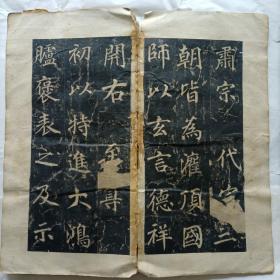 肅宗代宗
朝皆為灌頂國
師以玄言德祥
開右至尊
初以特進大鴻
臚褒表之及示